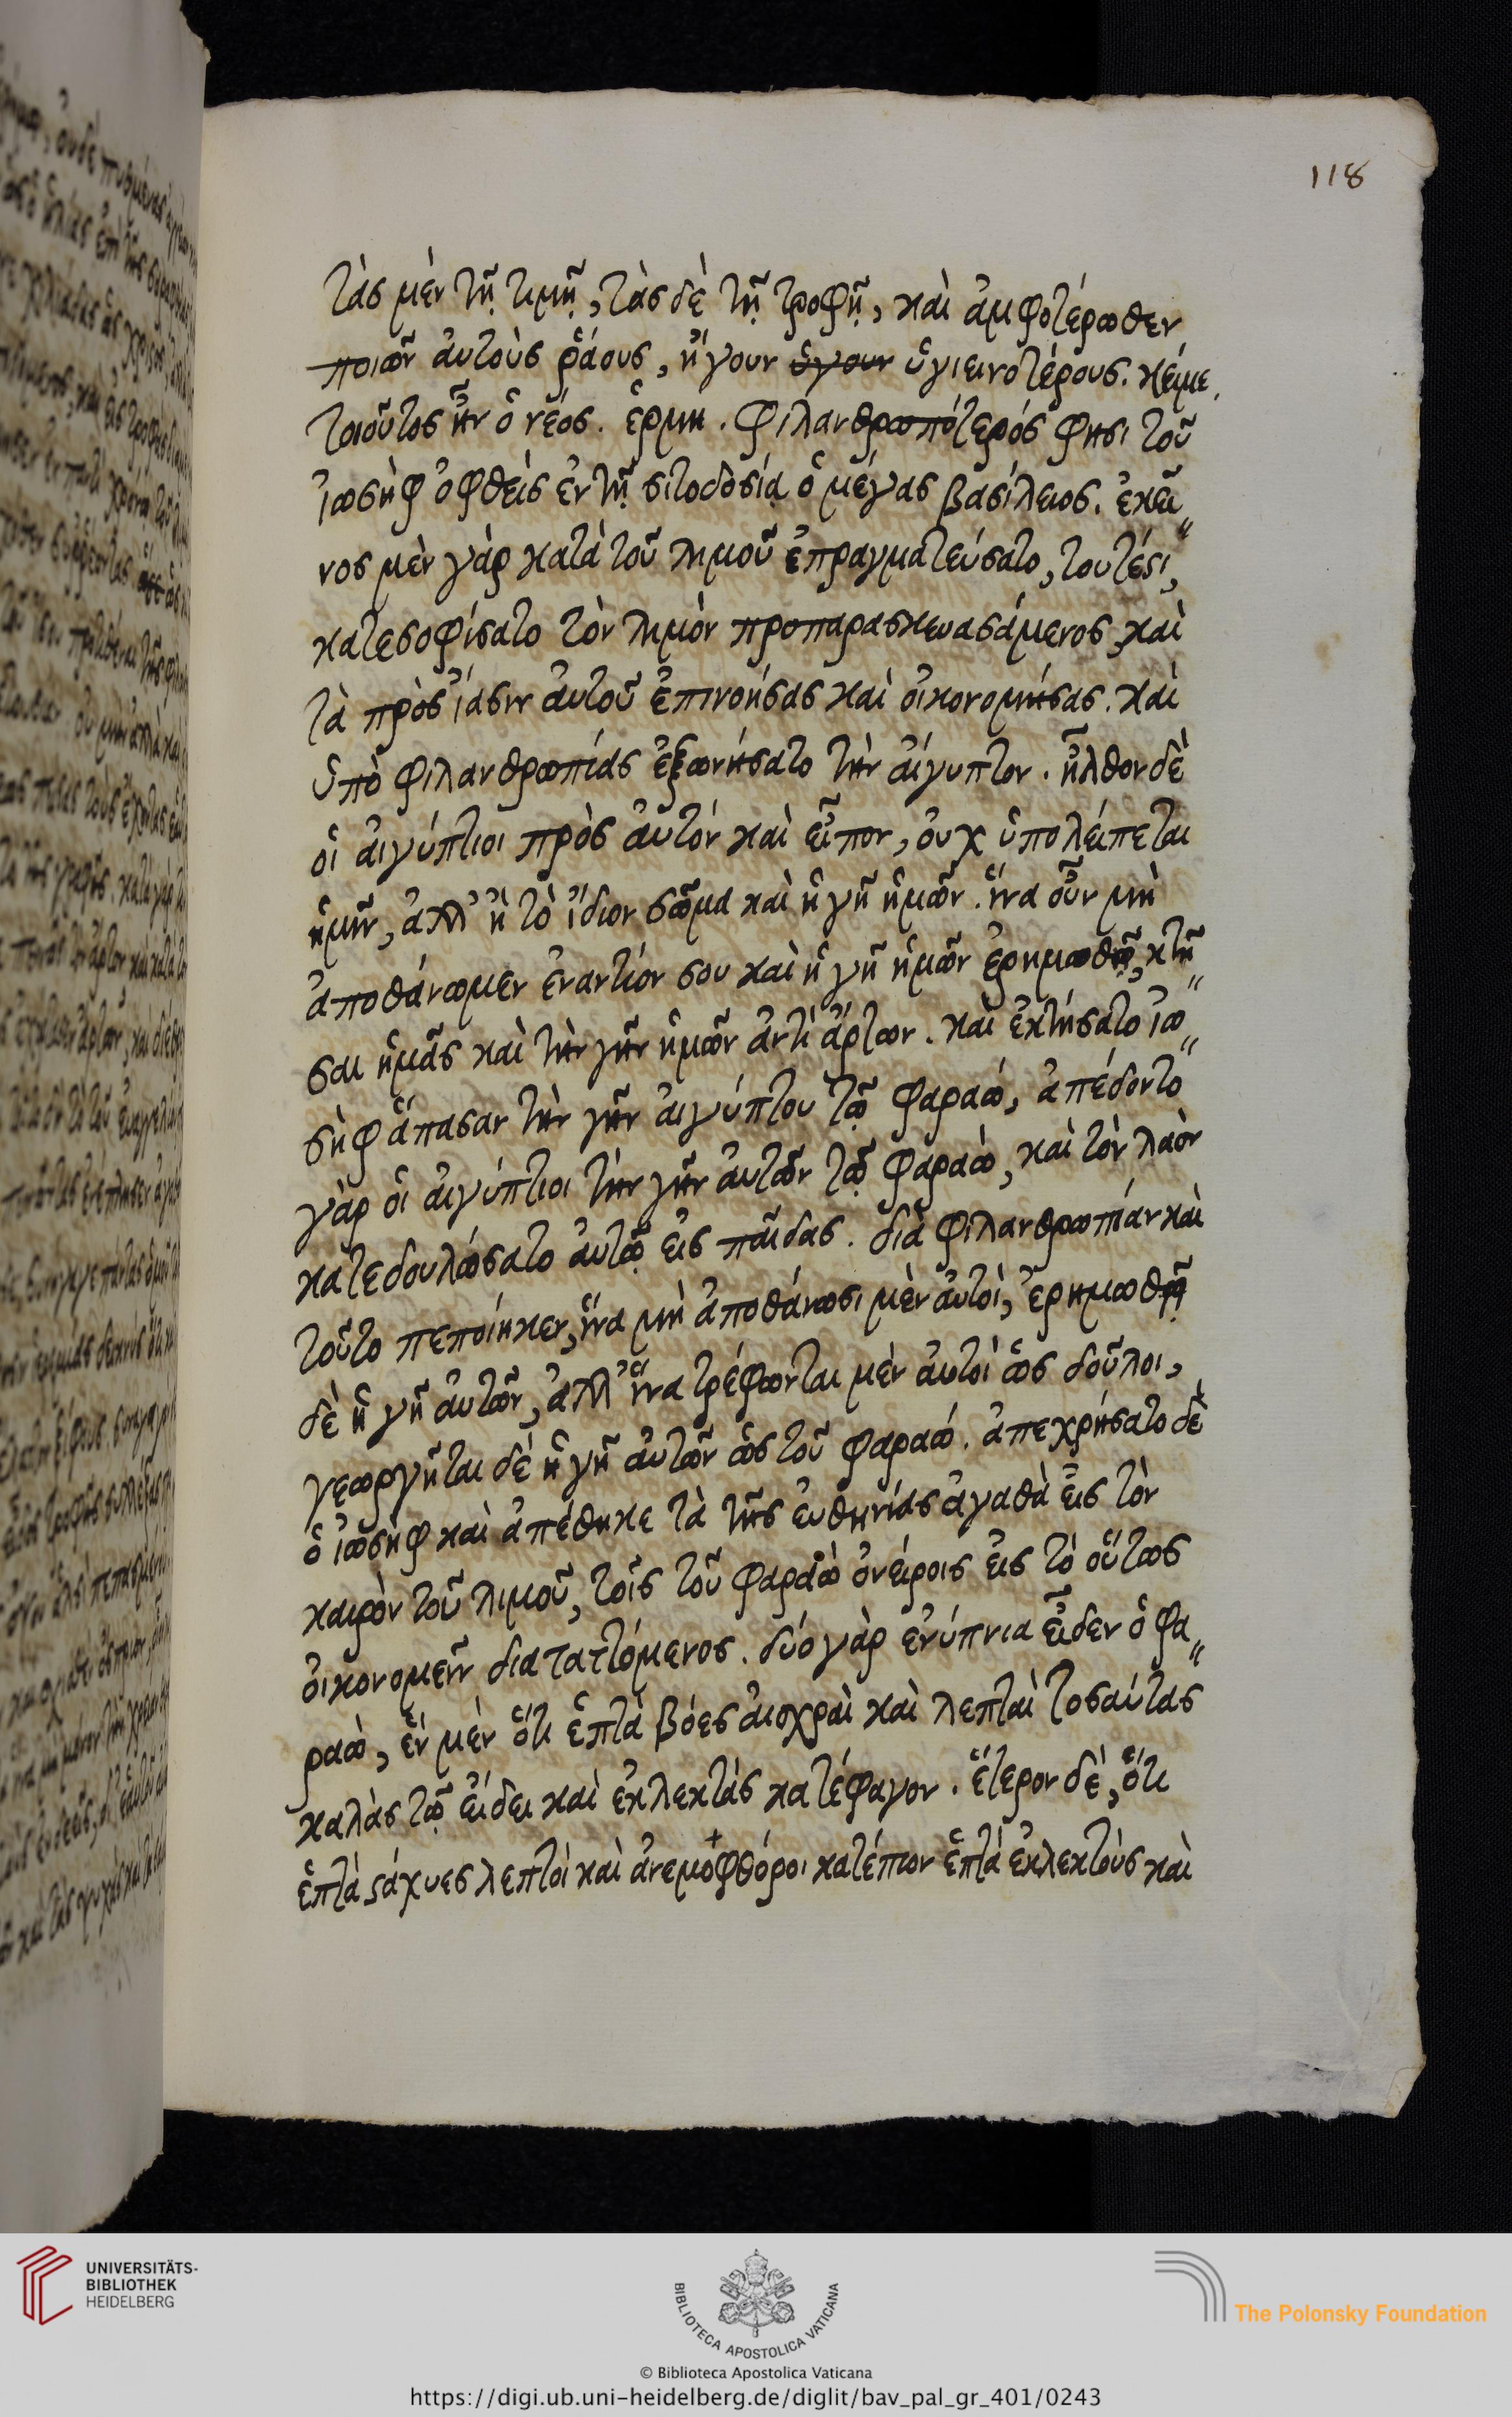 118
τὰς μὲν τῆ τιμῆ, τὰς δὲ τῆ τροφῆ, καὶ ἀμφοτέρωθεν
ποιῶν ἀυτοὺς ῥάους, ἤγουν ὑγουν ὑγιεινοτέρους. κείμε
τοιοῦτος ἦν ὁ νέος. ἑρμη. Φιλανθρωπότερός φησι τοῦ
ἰωσὴφ ὀφθεὶς ἐν τῆ σιτοδοσία ὁ μέγας βασίλειος. ἐκεῖ
νος μὲν γὰρ κατὰ τοῦ λιμοῦ ἐπραγματεύσατο, τουτέστι,
κατεσοφίσατο τὸν λιμὸν προπαρασκευασάμενος, καὶ
τὰ πρὸς ἴασιν ἀυτοῦ ἐπινοήσας καὶ οἰκονομήσας. καὶ
ὑπὸ φιλανθρωπίας ἐξωνήσατο τὴν αἴγυπτον. ἦλθον δὲ
οἱ ἀιγύπτιοι πρὸς ἀυτόν καὶ εἶπον, ὀυχ ὑπολείπεται
ἡμῖν, ἀλλ' ἢ τὸ ἴδιον σῶμα καὶ ἡ γῆ ἡμῶν. ἵνα οὖν μὴ
ἀποθάνωμεν ἐναντίον σου καὶ ἡ γῆ ἡμῶν ἐρημωθῆ, κτῆ
σαι ἡμᾶς καὶ τὴν γῆν ἡμῶν ἀντὶ ἄρτων. καὶ ἐκτήσατο ἰω
σὴφ ἅπασαν τὴν γῆν ἀιγύπτου τῶ φαραώ, ἀπέδοντο
γὰρ οἱ ἀιγύπτιοι τὴν γῆν ἀυτῶν τῶ φαραώ, καὶ τὸν λαὸν
κατεδουλώσατο ἀυτῶ εἰς παῖδας. διὰ φιλανθρωπίαν καὶ
τοῦτο πεποίηκεν, ἵνα μὴ ἀποθάνωσι μὲν ἀυτοὶ, ἐρημωθῆ
δὲ ἡ γῆ ἀυτῶν, ἀλλ' ἵνα τρέφωνται μὲν ἀυτοὶ ὡς δοῦλοι,
γεωργῆται δὲ ἡ γῆ ἀυτῶν ὡς τοῦ φαραώ. ἀπεχρήσατο δὲ
ὁ ἰωσὴφ καὶ ἀπέθηκε τὰ τῆς ἐυθηνίας ἀγαθὰ εἰς τὸν
καιρὸν τοῦ λιμοῦ, τοῖς τοῦ φαραὼ ὀνείροις εἰς τὸ οὕτως
οἰκονομεῖν διαταττόμενος. δύο γὰρ ἐνύπνια εἶδεν ὁ φα
ραὼ, ἓν μὲν ὅτι ἑπτὰ βόες ἀισχραὶ καὶ λεπταὶ τοσαύτας
καλὰς τῶ εἴδει καὶ ἐκλεκτὰς κατέφαγον. ἕτερον δὲ, ὅτι
ἑπτὰ στάχυες λεπτοὶ καὶ ἀνεμόφθόροι κατέπιον ἑπτὰ ἐκλεκτοὺς καὶ
UNIVERSITÄTS-
BIBLIOTHEK
HEIDELBERG
BIBLIOTECA APOSTOLICA VATICANA
The Polonsky Foundation
© Biblioteca Apostolica Vaticana
https://digi.ub.uni-heidelberg.de/diglit/bav_pal_gr_401/0243